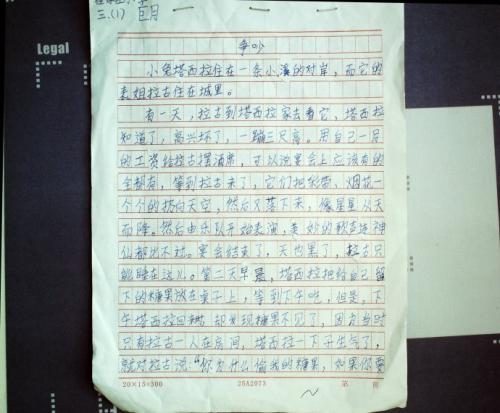 三.(1)
Legal
争吵
小兔塔西拉住在一条小溪的对岸，而它的
表姐拉古住在城里。
有一天，拉古到塔西拉家去看它，塔西拉
知道了，高兴坏了，一蹦三尺高。用自己一月
的工资给拉古摆酒席，可以说宴会上应该有的
全都有，等到拉古来了，它们把彩带、烟花一
个个的抛向天空，然后又落下来，像星星从天
而降。然后由乐队开始表演，美妙的歌声连神
仙都比不过。宴会结束了，天也黑了，拉古只
能睡在这儿。第二天早晨，塔西拉把给自己留
下的糖果放在桌子上，等到下午吃，但是，下
午塔西拉回来 却发现糖果不见了，因为当时
只有拉古一人在房间，塔西拉一下子生气了，
就对拉古说：“你为什么偷我的糖果，如果你要
20×15=300 25A2073 第 页